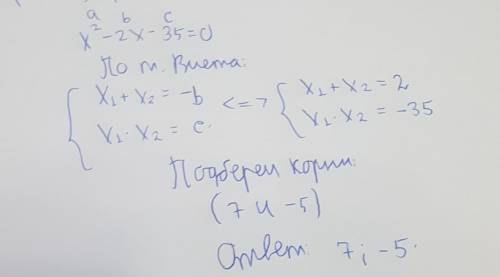 a b c
x² - 2x - 35 = 0
По т. Виета:
{ x₁ + x₂ = -b <=> { x₁ + x₂ = 2
x₁ · x₂ = c. x₁ · x₂ = -35
Подберем корни:
(7 и -5)
Ответ: 7; -5.